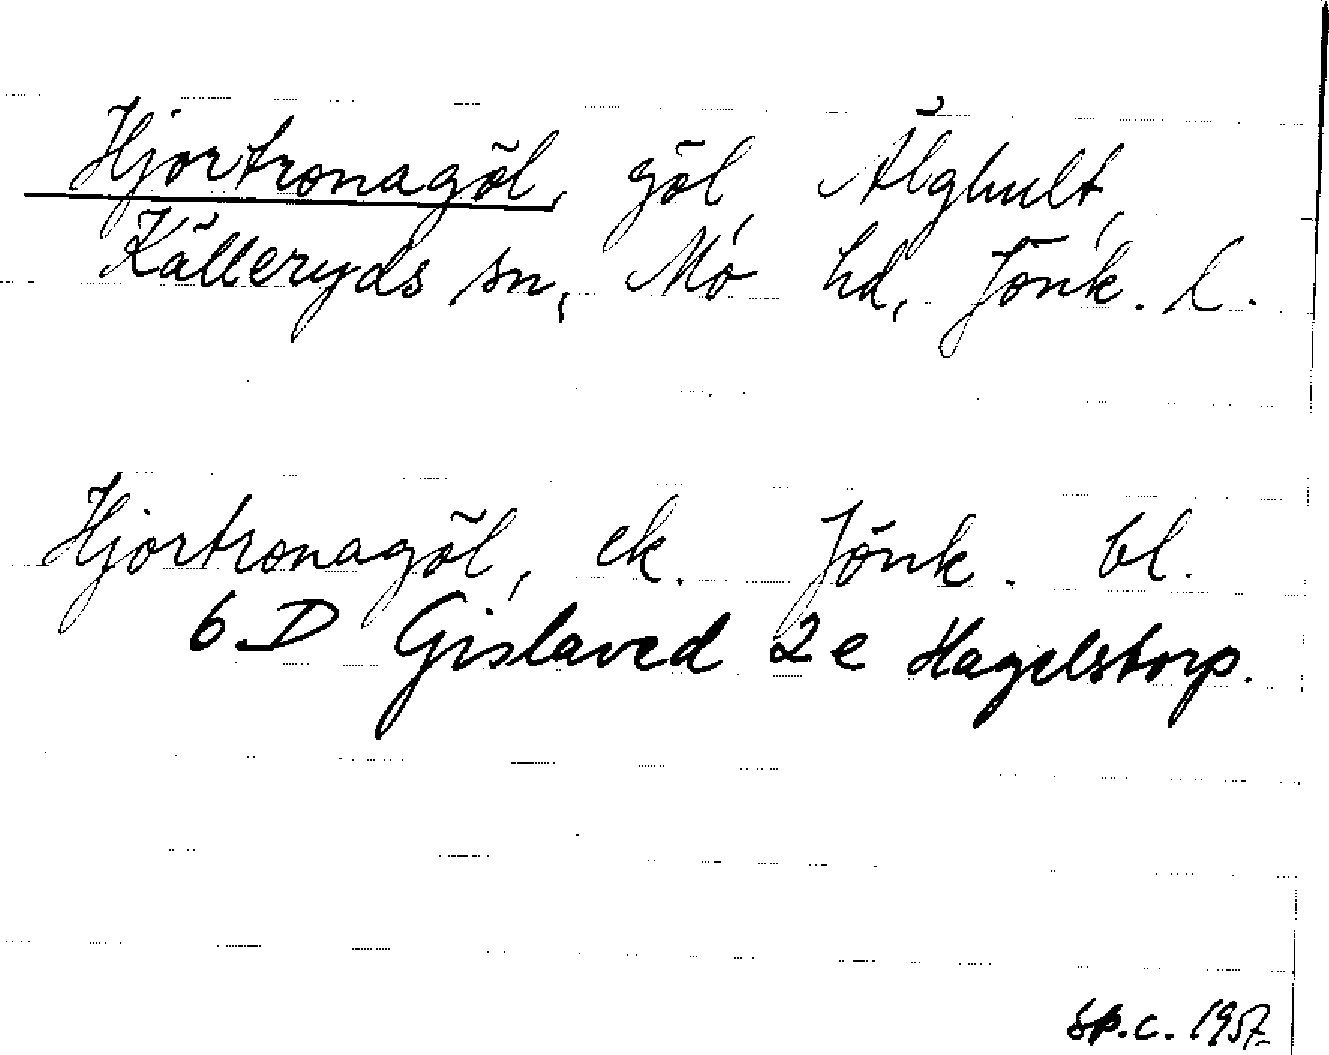 Hjortronagöl, göl, Älghult,
Källeryds sn, Mo hd, Jönk. l.
Hjortronagöl, ek. Jönk. bl.
6 D Gislaved 2e Hagelstorp.
Sp.c. 1957